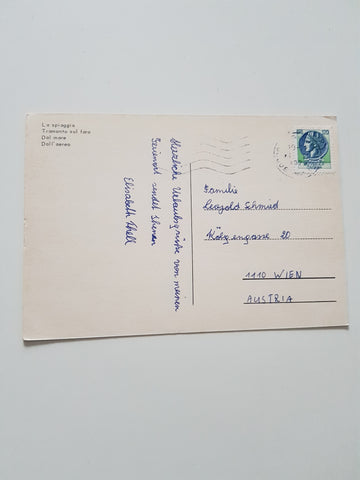 La spiaggia
Tramonto sul faro
Dal mare
Dall'aereo
Herzliche Urlaubsgrüße von meinem
Ferienort sendet Ihnen
Elisabeth
Familie
Leopold Schmid
Kölgengasse 20
1110 WIEN
AUSTRIA